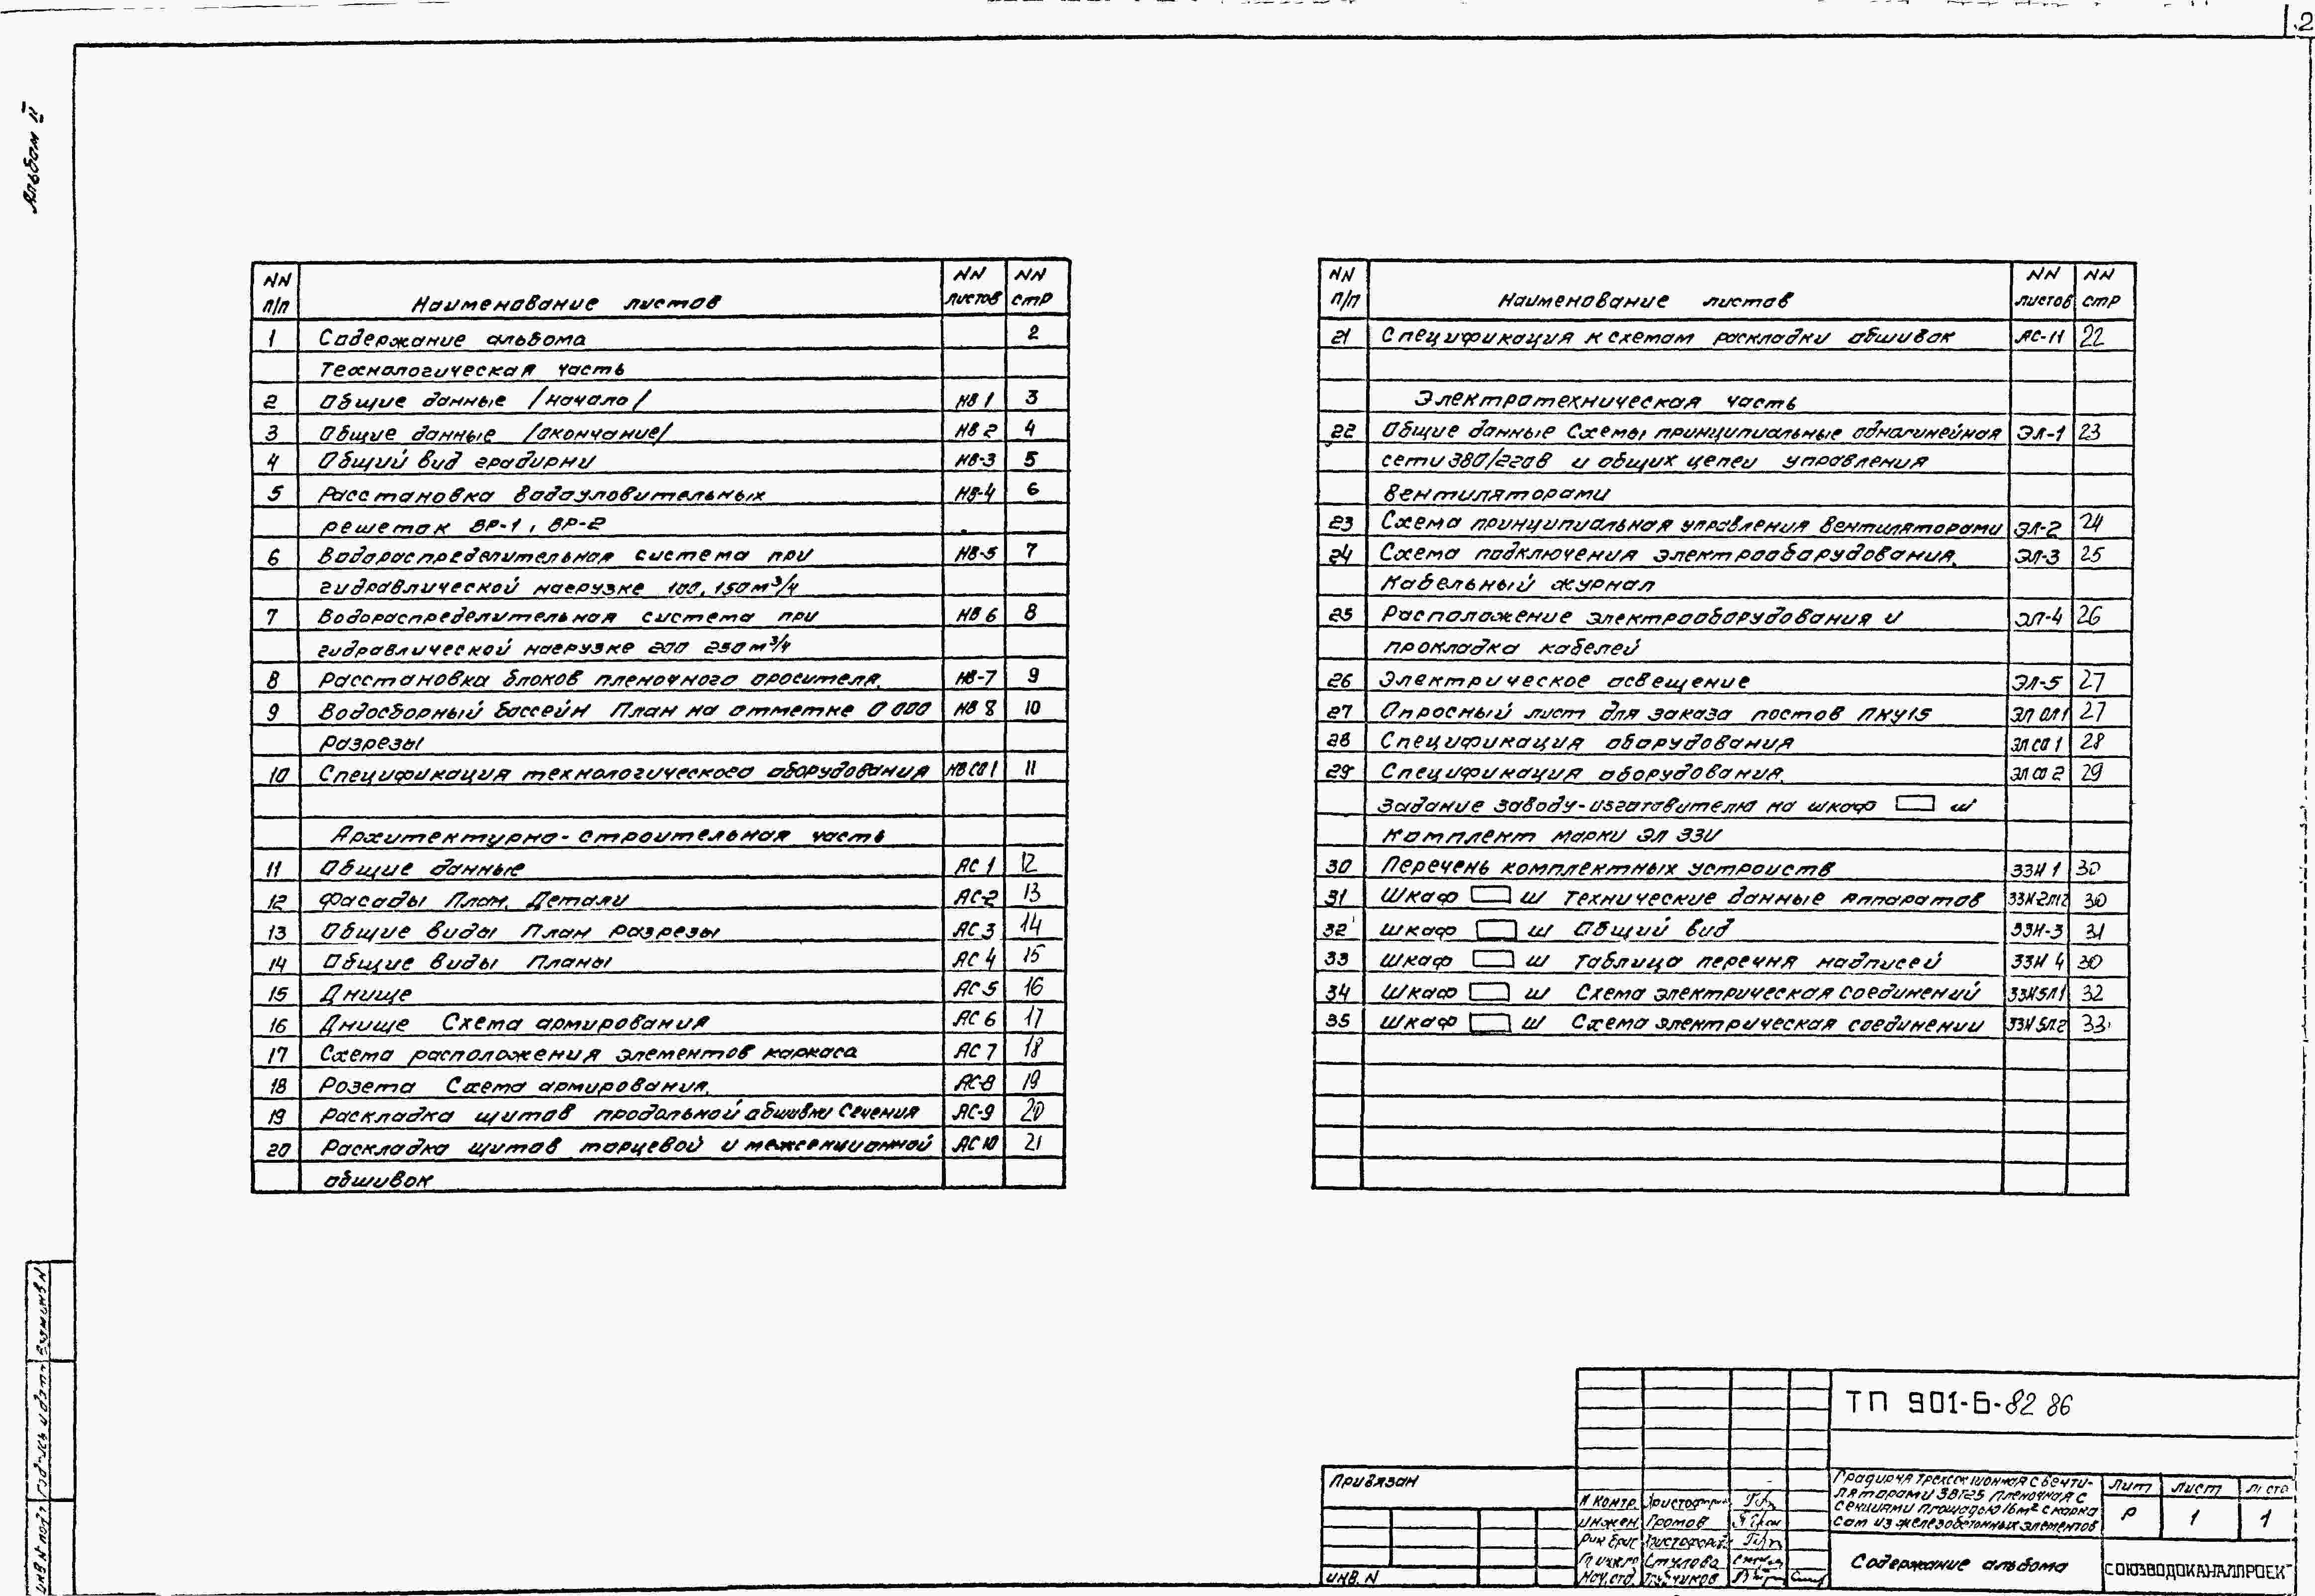 2
Альбом II
NN п/п Наименование листов NN листов NN стр
1 Содержание альбома 2
Технологическая часть
2 Общие данные /начало/ НВ 1 3
3 Общие данные /окончание/ НВ 2 4
4 Общий вид градирни НВ-3 5
5 Расстановка водоуловительных НВ-4 6
решеток ВР-1, ВР-2
6 Водораспределительная система при НВ-5 7
гидравлической нагрузке 100, 150 м³/ч
7 Водораспределительная система при НВ 6 8
гидравлической нагрузке 200 250 м³/ч
8 Расстановка блоков пленочного оросителя. НВ-7 9
9 Водосборный бассейн План на отметке 0 000 НВ 8 10
Разрезы
10 Спецификация технологического оборудования НВ СО 1 11
Архитектурно-строительная часть
11 Общие данные АС 1 12
12 Фасады План. Детали АС-2 13
13 Общие виды План Разрезы АС 3 14
14 Общие виды Планы АС 4 15
15 Днище АС 5 16
16 Днище Схема армирования АС 6 17
17 Схема расположения элементов каркаса АС 7 18
18 Розета Схема армирования. АС-8 19
19 Раскладка щитов продольной обшивки Сечения АС-9 20
20 Раскладка щитов торцевой и межсекционной АС 10 21
обшивок
NN п/п Наименование листов NN листов NN стр
21 Спецификация к схемам раскладки обшивок АС-11 22
Электротехническая часть
22 Общие данные Схемы принципиальные однолинейная ЭЛ-1 23
сети 380/220В и общих цепей управления
вентиляторами
23 Схема принципиальная управления вентиляторами ЭЛ-2 24
24 Схема подключения электрооборудования. ЭЛ-3 25
Кабельный журнал
25 Расположение электрооборудования и ЭЛ-4 26
прокладка кабелей
26 Электрическое освещение ЭЛ-5 27
27 Опросный лист для заказа постов ПКУ15 ЭЛ ОЛ1 27
28 Спецификация оборудования ЭЛ СО 1 28
29 Спецификация оборудования. ЭЛ СО 2 29
Задание заводу-изготовителю на шкаф Ш
Комплект марки ЭЛ ЗЗИ
30 Перечень комплектных устройств ЗЗИ 1 30
31 Шкаф Ш Технические данные аппаратов ЗЗИ-2Л12 30
32 Шкаф Ш Общий вид ЗЗИ-3 31
33 Шкаф Ш Таблица перечня надписей ЗЗИ 4 30
34 Шкаф Ш Схема электрическая соединений ЗЗИ5Л1 32
35 Шкаф Ш Схема электрическая соединений ЗЗИ5Л.2 33
Взам инв N
Подпись и дата
Инв N подл
Привязан
Инв. N
ТП 901-6-82 86
Градирня трехсекционная с венти-
ляторами 3ВГ25 пленочная с
секциями площадью 16м² с карка
сом из железобетонных элементов
Лит Лист
Р 1 1
Н контр.
Инжен. Громов
Рук бриг
Стулова
Нач. отд.
Содержание альбома
СОЮЗВОДОКАНАЛПРОЕКТ